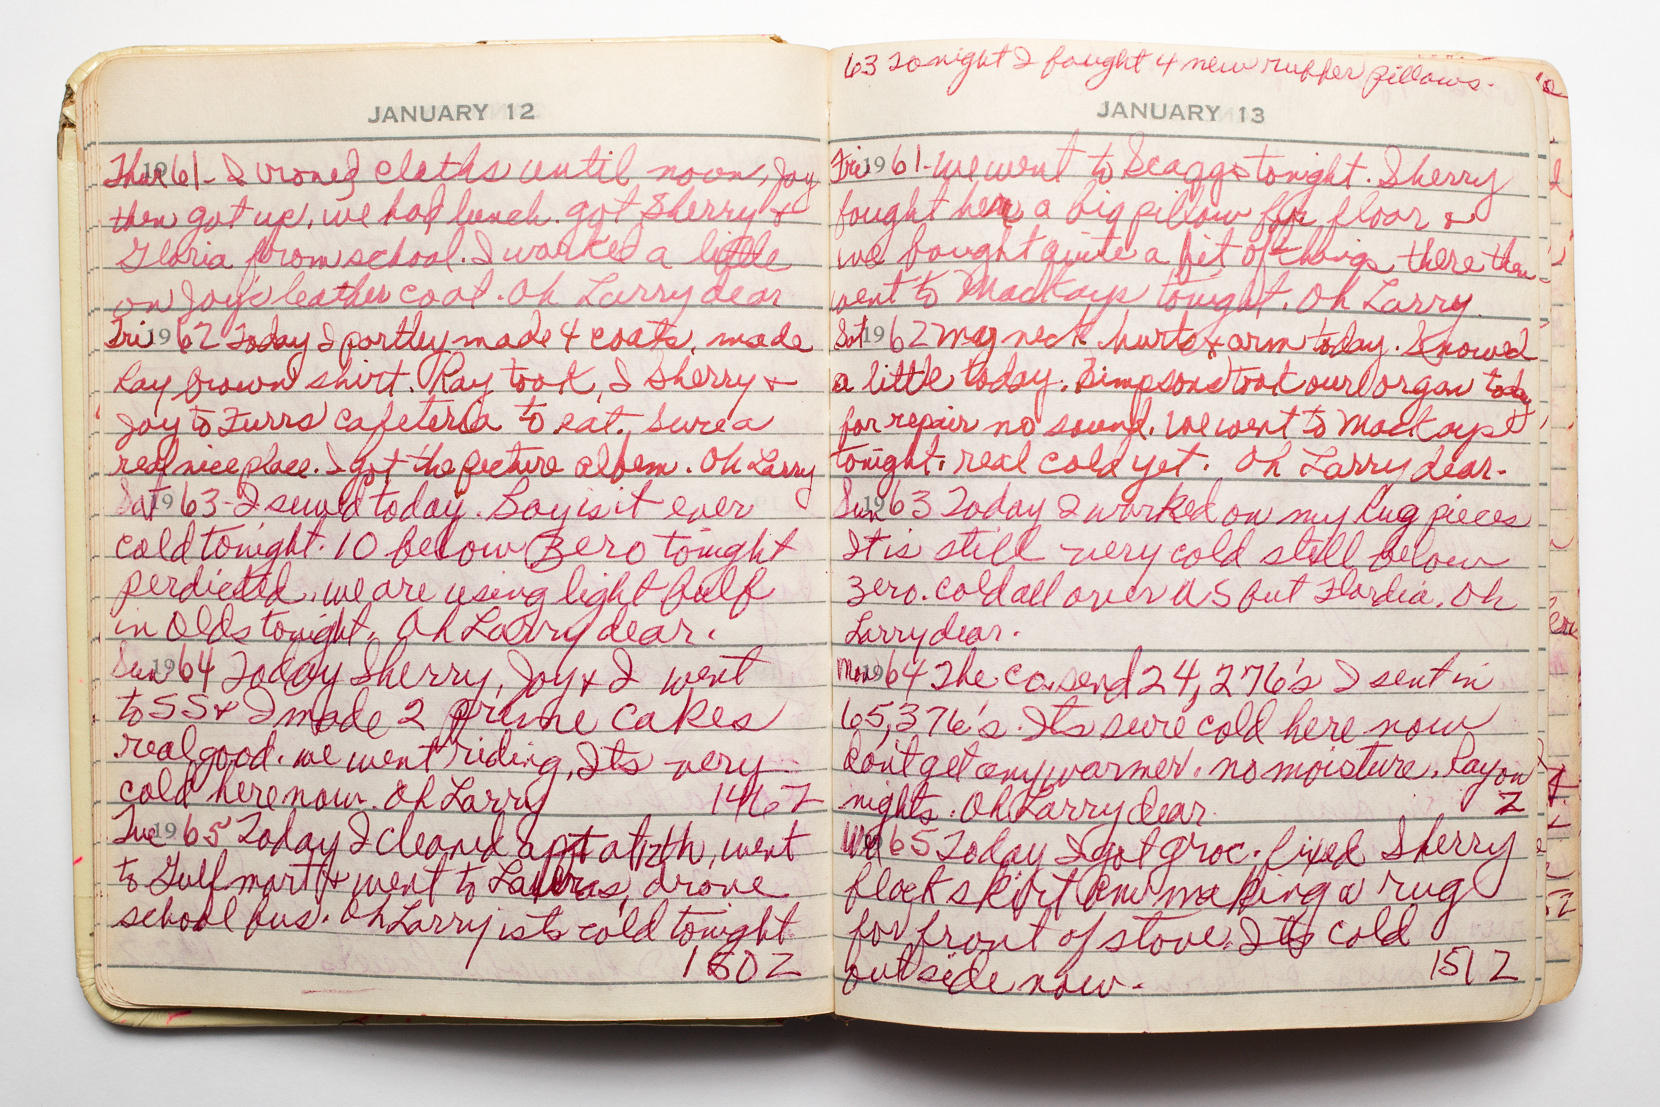 JANUARY 12
Thur 1961- I ironed cloths until noon, Joy
then got up, we had lunch. got Sherry &
Gloria from school. I worked a little
on Joy's leather coat. Oh Larry dear
Fri 1962 Today I partley made 4 coats, made
Ray brown shirt. Ray took, I Sherry &
Joy to Furrs cafeteria to eat. Sure a
real nice place. I got the picture albem. Oh Larry
Sat 1963- I sewed today. Boy is it ever
cold tonight. 10 below Zero tonight
perdicted, we are using light bulb
in Olds tonight. Oh Larry dear.
Sun 1964 Today Sherry, Joy & I went
to SS & I made 2 prune cakes
real good. we went riding, Its very
cold here now. Oh Larry 1467
Tue 1965 Today I cleaned appt at 12th, went
to Gulf mart & went to Lauras, drove
school bus. Oh Larry its cold tonight
1502
63 Tonight I bought 4 new rubber pillows.
JANUARY 13
Fri 1961- We went to Skaggs tonight. Sherry
bought her a big pillow for floar &
we bought quite a bit of things there then
went to MacKays tonight. Oh Larry.
Sat 1962 My neck hurts & arm today. Snowed
a little today. Simpsons took our organ today
for repair no sound. We went to MacKays
tonight. real cold yet. Oh Larry dear.
Sun 1963 Today I worked on my rug pieces
It is still very cold still below
Zero. cold all over US but Flordia. Oh
Larry dear.
Mon 1964 The co. send 24,276's I sent in
65,376's. Its sure cold here now
don't get any warmer. no moisture. Ray on
nights. Oh Larry dear. 2
Wed 1965 Today I got groc. fixed Sherry
black skirt am making a rug
for front of stove. Its cold
outside now. 1512